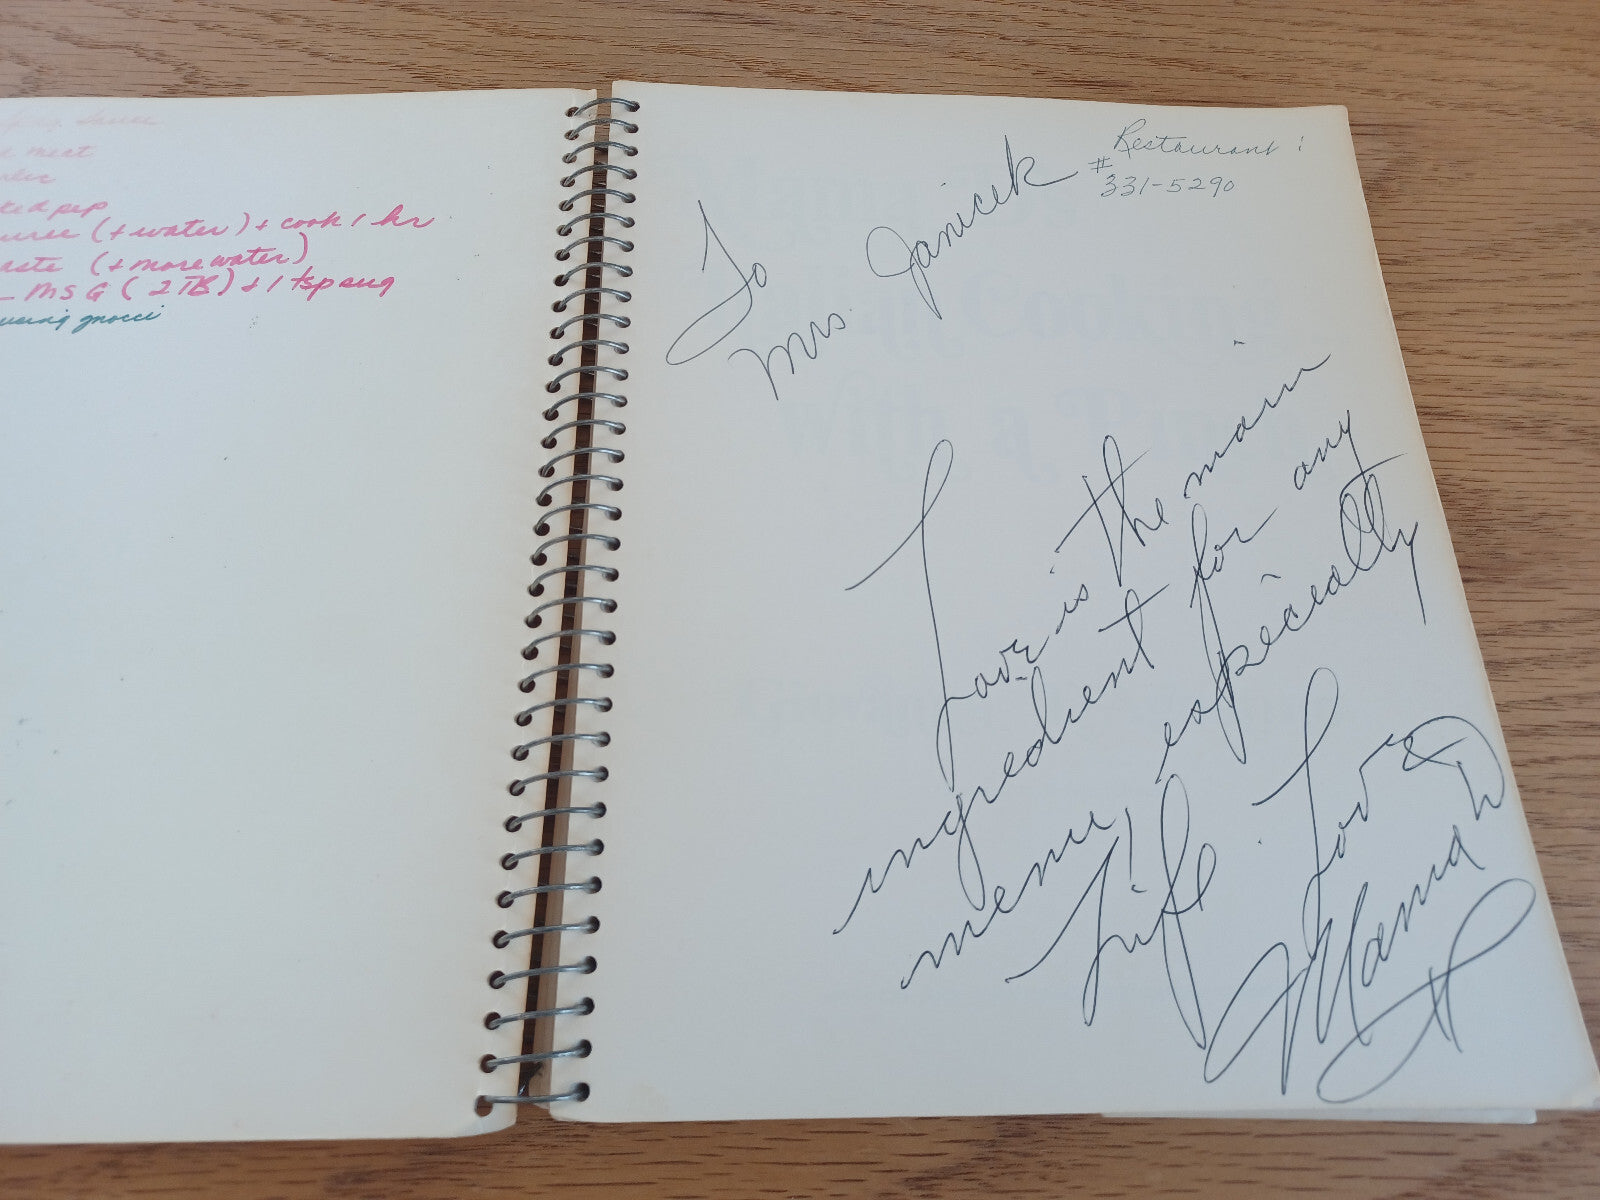 meat
(+ water) + cook 1 hr
(+ more water)
MSG (2 TB) + 1 tsp sug
gnocci
Restaurant:
# 331-5290
To
Mrs. Janicek
Love is the main
ingredient for any
menu, especially
Life. Love
Mama D